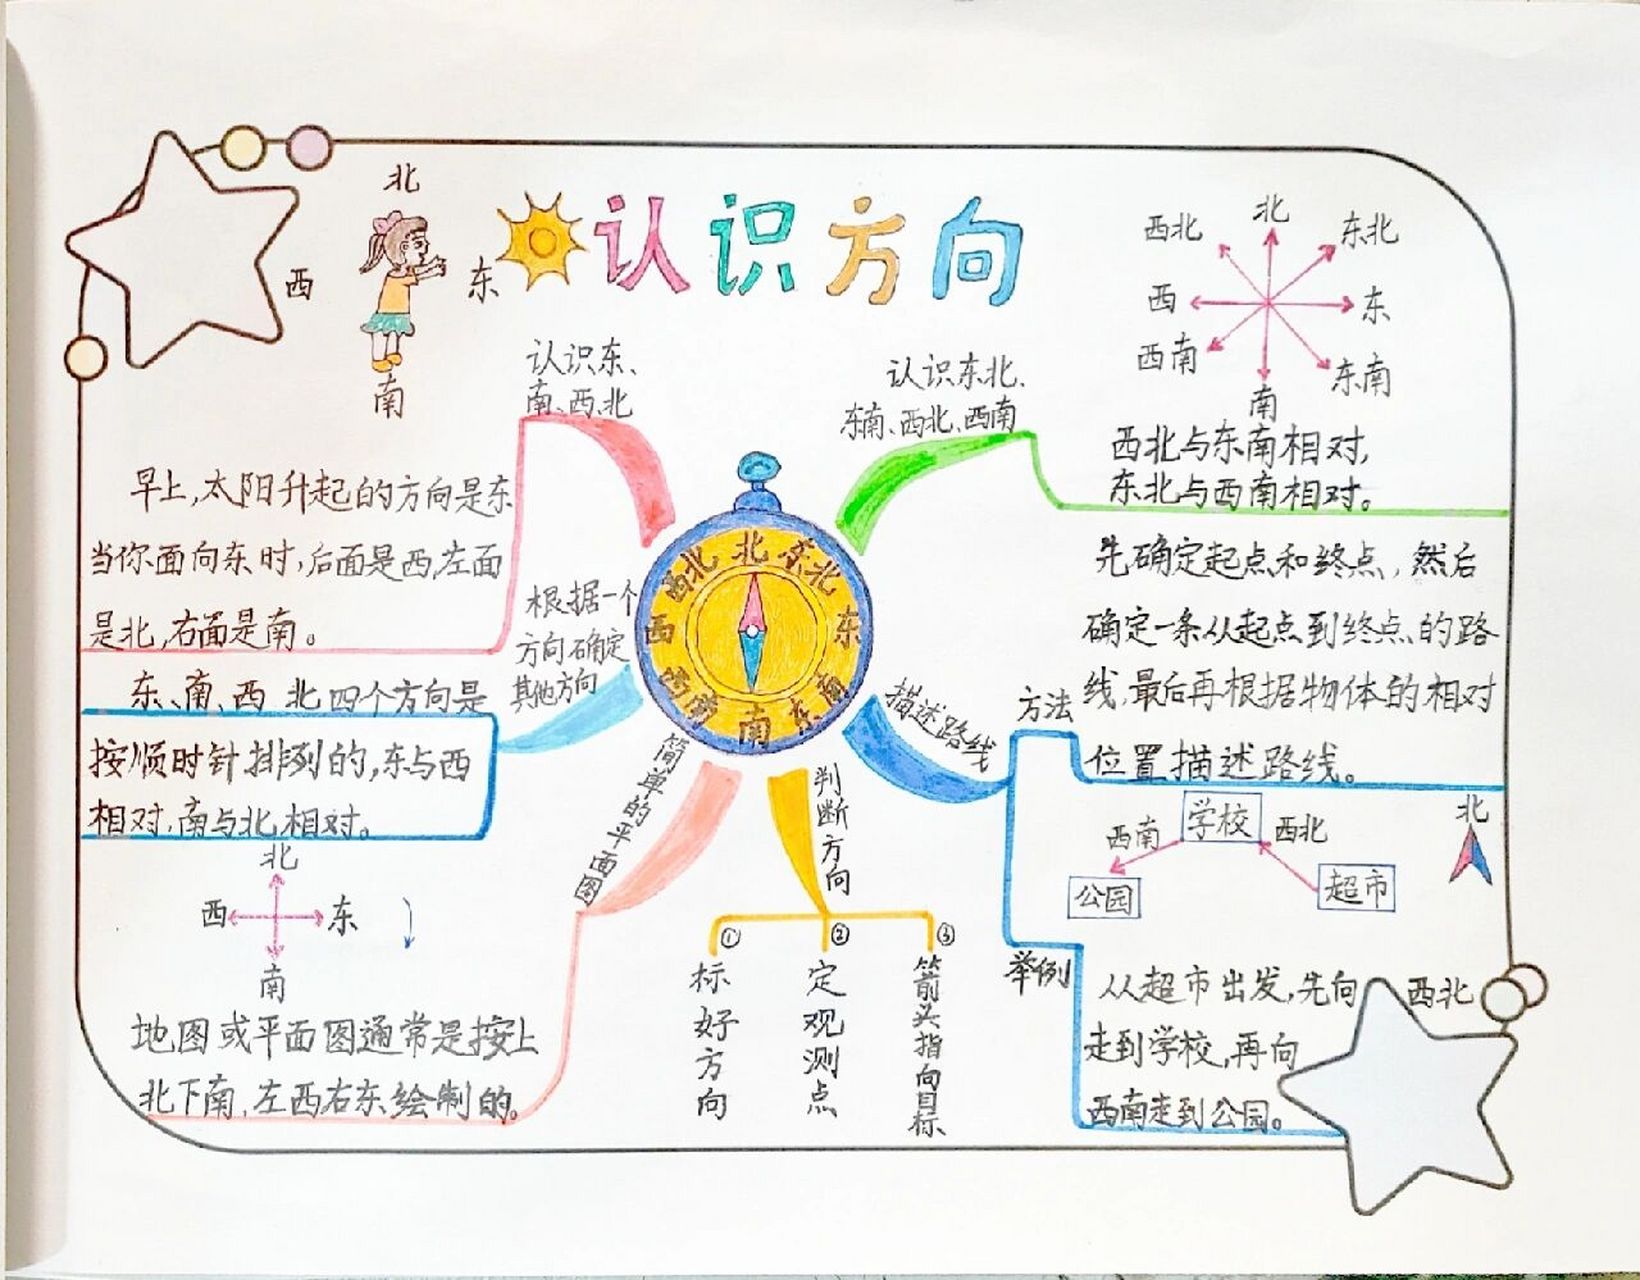 认识方向
北
西
东
南
认识东、
南、西、北
早上,太阳升起的方向是东
当你面向东时,后面是西,左面
是北,右面是南。
根据一个
方向确定
其他方向
东、南、西 北四个方向是
按顺时针排列的,东与西
相对,南与北相对。
简单的平面图
北
西
东
南
地图或平面图通常是按上
北下南,左西右东绘制的。
北
东北
东
东南
南
西南
西
西北
判断方向
①
标好方向
②
定观测点
③
箭头指向目标
认识东北、
东南、西北、西南
北
西北
东北
西
东
西南
东南
南
西北与东南相对,
东北与西南相对。
描述路线
方法
先确定起点和终点,然后
确定一条从起点到终点的路
线,最后再根据物体的相对
位置描述路线。
北
学校
西南
西北
公园
超市
举例
从超市出发,先向西北
走到学校,再向
西南走到公园。